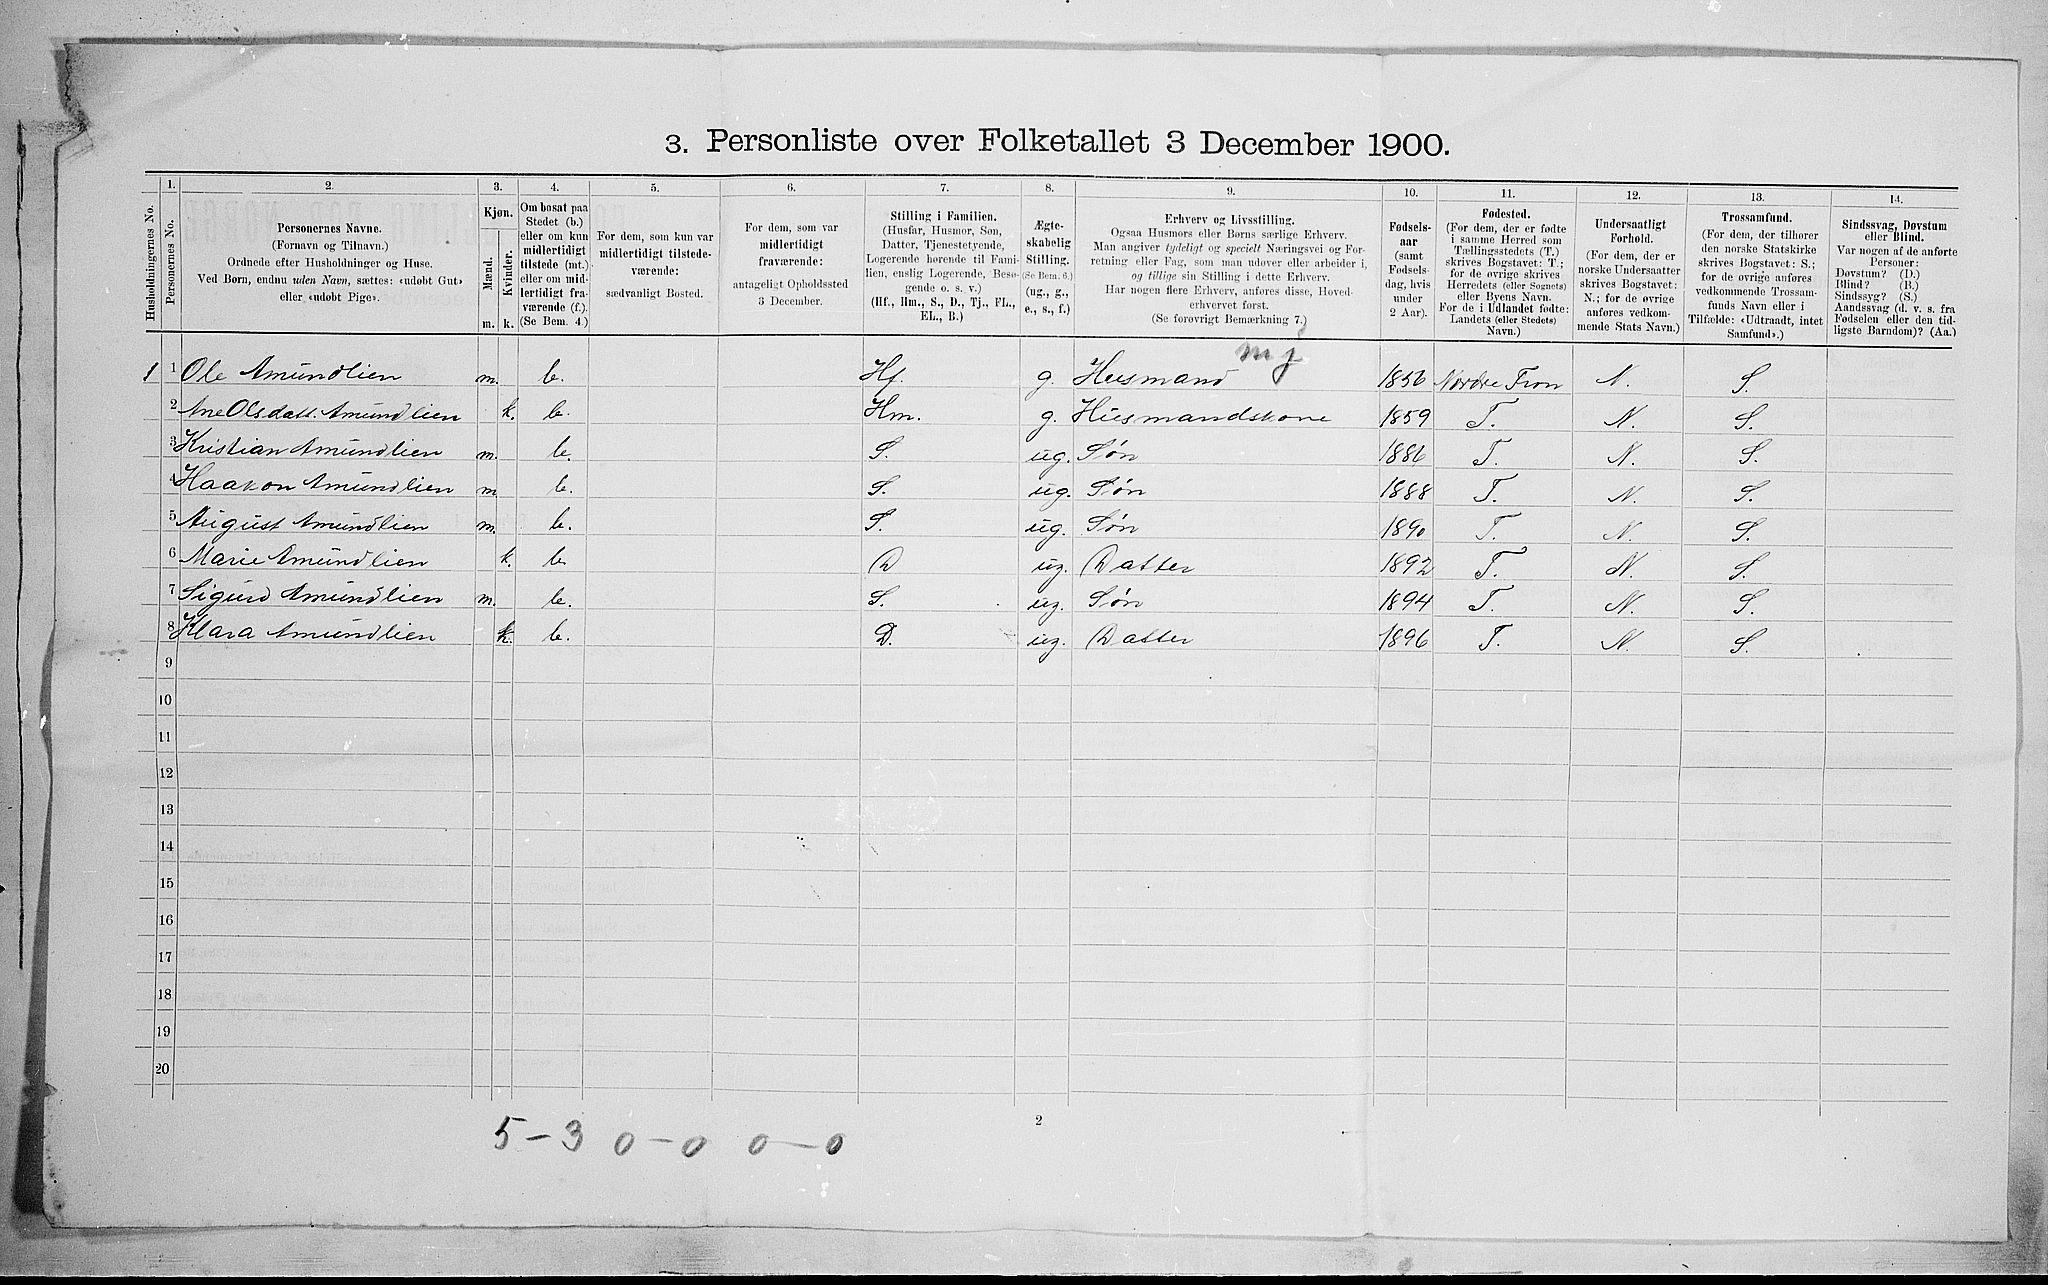 3. Personliste over Folketallet 3 December 1900.
Husholdningernes No.
1. Personernes No.
2. Personernes Navne.
(Fornavn og Tilnavn.)
Ordnede efter Husholdninger og Huse.
Ved Børn, endnu uden Navn, sættes: «udøbt Gut»
eller «udøbt Pige».
3. Kjøn.
Mænd. m.
Kvinder. k.
4. Om bosat paa
Stedet (b.)
eller om kun
midlertidigt
tilstede (mt.)
eller om mid-
lertidigt fra-
værende (f.)
(Se Bem. 4.)
5. For dem, som kun var
midlertidigt tilstede-
værende:
sædvanligt Bosted.
6. For dem, som var
midlertidigt
fraværende:
antageligt Opholdssted
3 December.
7. Stilling i Familien.
(Husfar, Husmor, Søn,
Datter, Tjenestetyende,
Logerende hørende til Fami-
lien, enslig Logerende, Besø-
gende o. s. v.)
(Hf., Hm., S., D., Tj., FL.,
EL., B.)
8. Ægte-
skabelig
Stilling.
(Se Bem. 6.)
(ug., g.,
e., s., f.)
9. Erhverv og Livsstilling.
Ogsaa Husmors eller Børns særlige Erhverv.
Man angiver tydeligt og specielt Næringsvei og For-
retning eller Fag, som man udøver eller arbeider i,
og tillige sin Stilling i dette Erhverv.
Har nogen flere Erhverv, anføres disse, Hoved-
erhvervet først.
(Se forøvrigt Bemærkning 7.)
10. Fødsels-
aar
(samt
Fødsels-
dag, hvis
under
2 Aar).
11. Fødested.
(For dem, der er fødte
i samme Herred som
Tællingsstedets (T.)
skrives Bogstavet: T.;
for de øvrige skrives
Herredets (eller Sognets)
eller Byens Navn.
For de i Udlandet fødte:
Landets (eller Stedets)
Navn.)
12. Undersaatligt
Forhold.
(For dem, der er
norske Undersaatter
skrives Bogstavet:
N.; for de øvrige
anføres vedkom-
mende Stats Navn.)
13. Trossamfund.
(For dem, der tilhører
den norske Statskirke
skrives Bogstavet: S.;
for de øvrige anføres
vedkommende Trossam-
funds Navn eller i
Tilfælde: «Udtraadt, intet
Samfund».)
14. Sindssvag, Døvstum
eller Blind.
Var nogen af de anførte
Personer:
Døvstum? (D.)
Blind? (B.)
Sindssyg? (S.)
Aandssvag (d. v. s. fra
Fødselen eller den tid-
ligste Barndom)? (Aa.)
mj
1 1 Ole Amundlien m. b. Hf. g. Husmand 1856 Nordre Fron N. S.
2 Ane Olsdatt. Amundlien k. b. Hm. g. Husmandskone 1859 T. N. S.
3 Kristian Amundlien m. b. S. ug. Søn 1886 T. N. S.
4 Haakon Amundlien m. b. S. ug. Søn 1888 T. N. S.
5 August Amundlien m. b. S. ug. Søn 1890 T. N. S.
6 Marie Amundlien k. b. D ug. Datter 1892 T. N. S.
7 Sigurd Amundlien m. b. S. ug. Søn 1894 T. N. S.
8 Klara Amundlien k. b. D. ug. Datter 1896 T. N. S.
9
10
11
12
13
14
15
16
17
18
19
20
2
5-3 0-0 0-0